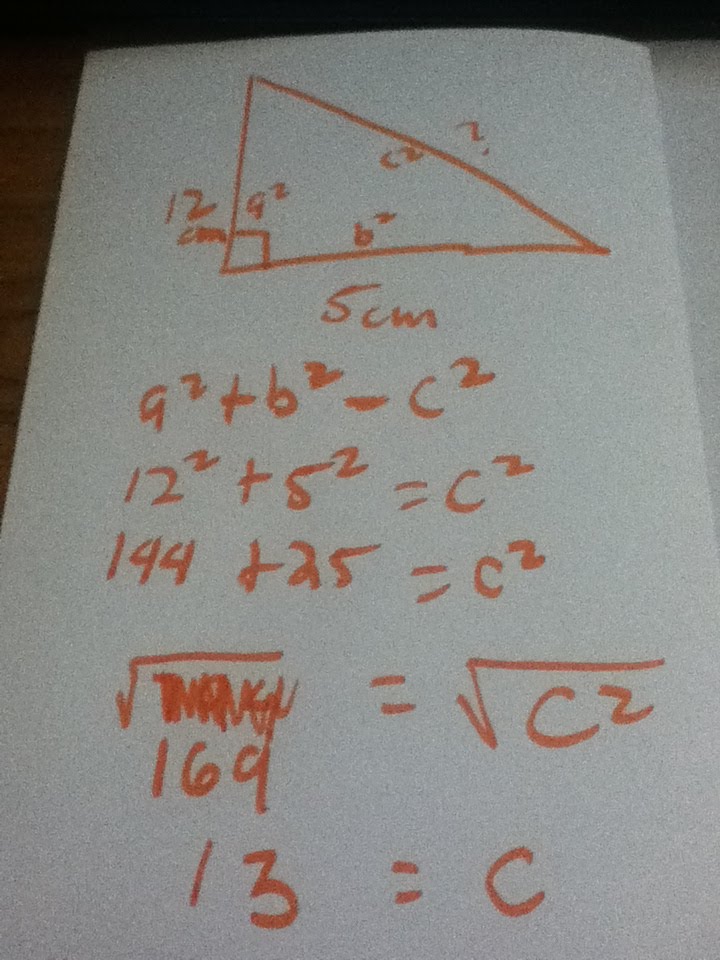 ?
c²
12 a²
cm
b²
5cm
a² + b² - c²
12² + 5² = c²
144 + 25 = c²
√ = √c²
169
13 = c